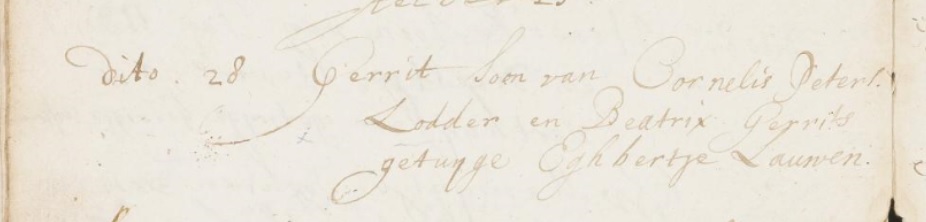 dito. 28 Gerrit soon van Cornelis Peters.
Lodder en Beatrix Gerrits
getuyge Eghbertje Lauwen.